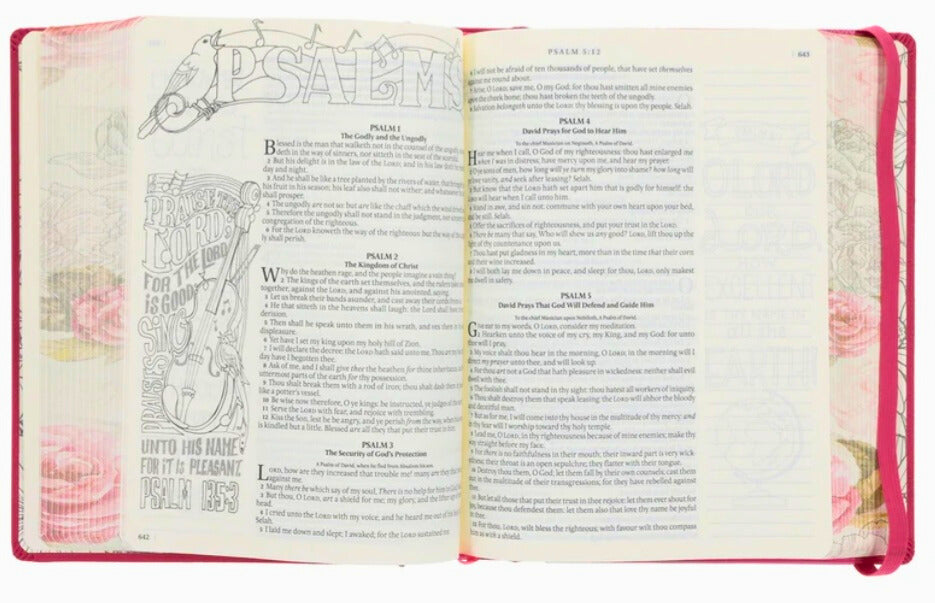 PSALMS
PRAISE THE
LORD
FOR THE LORD
IS GOOD:
SING
PRAISES
UNTO HIS NAME
FOR IT IS PLEASANT
PSALM 135:3
642
PSALM 1
The Godly and the Ungodly
Blessed is the man that walketh not in the counsel of the ungodly,
deth in the way of sinners, nor sitteth in the seat of the scornful.
2 But his delight is in the law of the LORD; and in his law doth he
day and night.
3 And he shall be like a tree planted by the rivers of water, that
his fruit in his season; his leaf also shall not wither; and whatsoever
shall prosper.
4 The ungodly are not so: but are like the chaff which the wind
5 Therefore the ungodly shall not stand in the judgment, nor sinners
congregation of the righteous.
6 For the LORD knoweth the way of the righteous: but the way of the
ly shall perish.
PSALM 2
The Kingdom of Christ
Why do the heathen rage, and the people imagine a vain thing?
2 The kings of the earth set themselves, and the rulers take
together, against the LORD, and against his anointed, saying,
3 Let us break their bands asunder, and cast away their cords
4 He that sitteth in the heavens shall laugh: the Lord shall
derision.
5 Then shall he speak unto them in his wrath, and vex them in
displeasure.
6 Yet have I set my king upon my holy hill of Zion.
7 I will declare the decree: the LORD hath said unto me, Thou art
day have I begotten thee.
8 Ask of me, and I shall give thee the heathen for thine inheritance,
uttermost parts of the earth for thy possession.
9 Thou shalt break them with a rod of iron; thou shalt dash them
like a potter's vessel.
10 Be wise now therefore, O ye kings: be instructed, ye judges of the
11 Serve the LORD with fear, and rejoice with trembling.
12 Kiss the Son, lest he be angry, and ye perish from the way, when
is kindled but a little. Blessed are all they that put their trust in him.
PSALM 3
The Security of God's Protection
A Psalm of David, when he fled from Absalom his son.
LORD, how are they increased that trouble me! many are they that
against me.
2 Many there be which say of my soul, There is no help for him in
3 But thou, O LORD, art a shield for me; my glory, and the lifter up
head.
4 I cried unto the LORD with my voice, and he heard me out of his
Selah.
5 I laid me down and slept; I awaked; for the LORD sustained me.
PSALM 5:12
643
6 I will not be afraid of ten thousands of people, that have set themselves
against me round about.
7 Arise, O LORD; save me, O my God: for thou hast smitten all mine enemies
upon the cheek bone; thou hast broken the teeth of the ungodly.
8 Salvation belongeth unto the LORD: thy blessing is upon thy people. Selah.
PSALM 4
David Prays for God to Hear Him
To the chief Musician on Neginoth, A Psalm of David.
Hear me when I call, O God of my righteousness: thou hast enlarged me
when I was in distress; have mercy upon me, and hear my prayer.
2 O ye sons of men, how long will ye turn my glory into shame? how long will
ye love vanity, and seek after leasing? Selah.
3 But know that the LORD hath set apart him that is godly for himself: the
LORD will hear when I call unto him.
4 Stand in awe, and sin not: commune with your own heart upon your bed,
and be still. Selah.
5 Offer the sacrifices of righteousness, and put your trust in the LORD.
6 There be many that say, Who will shew us any good? LORD, lift thou up the
light of thy countenance upon us.
7 Thou hast put gladness in my heart, more than in the time that their corn
and their wine increased.
8 I will both lay me down in peace, and sleep: for thou, LORD, only makest
me dwell in safety.
PSALM 5
David Prays That God Will Defend and Guide Him
To the chief Musician upon Nehiloth, A Psalm of David.
Give ear to my words, O LORD, consider my meditation.
2 Hearken unto the voice of my cry, my King, and my God: for unto
thee will I pray.
3 My voice shalt thou hear in the morning, O LORD; in the morning will I
direct my prayer unto thee, and will look up.
4 For thou art not a God that hath pleasure in wickedness: neither shall evil
dwell with thee.
5 The foolish shall not stand in thy sight: thou hatest all workers of iniquity.
6 Thou shalt destroy them that speak leasing: the LORD will abhor the bloody
and deceitful man.
7 But as for me, I will come into thy house in the multitude of thy mercy: and
in thy fear will I worship toward thy holy temple.
8 Lead me, O LORD, in thy righteousness because of mine enemies; make thy
way straight before my face.
9 For there is no faithfulness in their mouth; their inward part is very wick-
edness; their throat is an open sepulchre; they flatter with their tongue.
10 Destroy thou them, O God; let them fall by their own counsels; cast them
out in the multitude of their transgressions; for they have rebelled against
thee.
11 But let all those that put their trust in thee rejoice: let them ever shout for
joy, because thou defendest them: let them also that love thy name be joyful
in thee.
12 For thou, LORD, wilt bless the righteous; with favour wilt thou compass
him as with a shield.